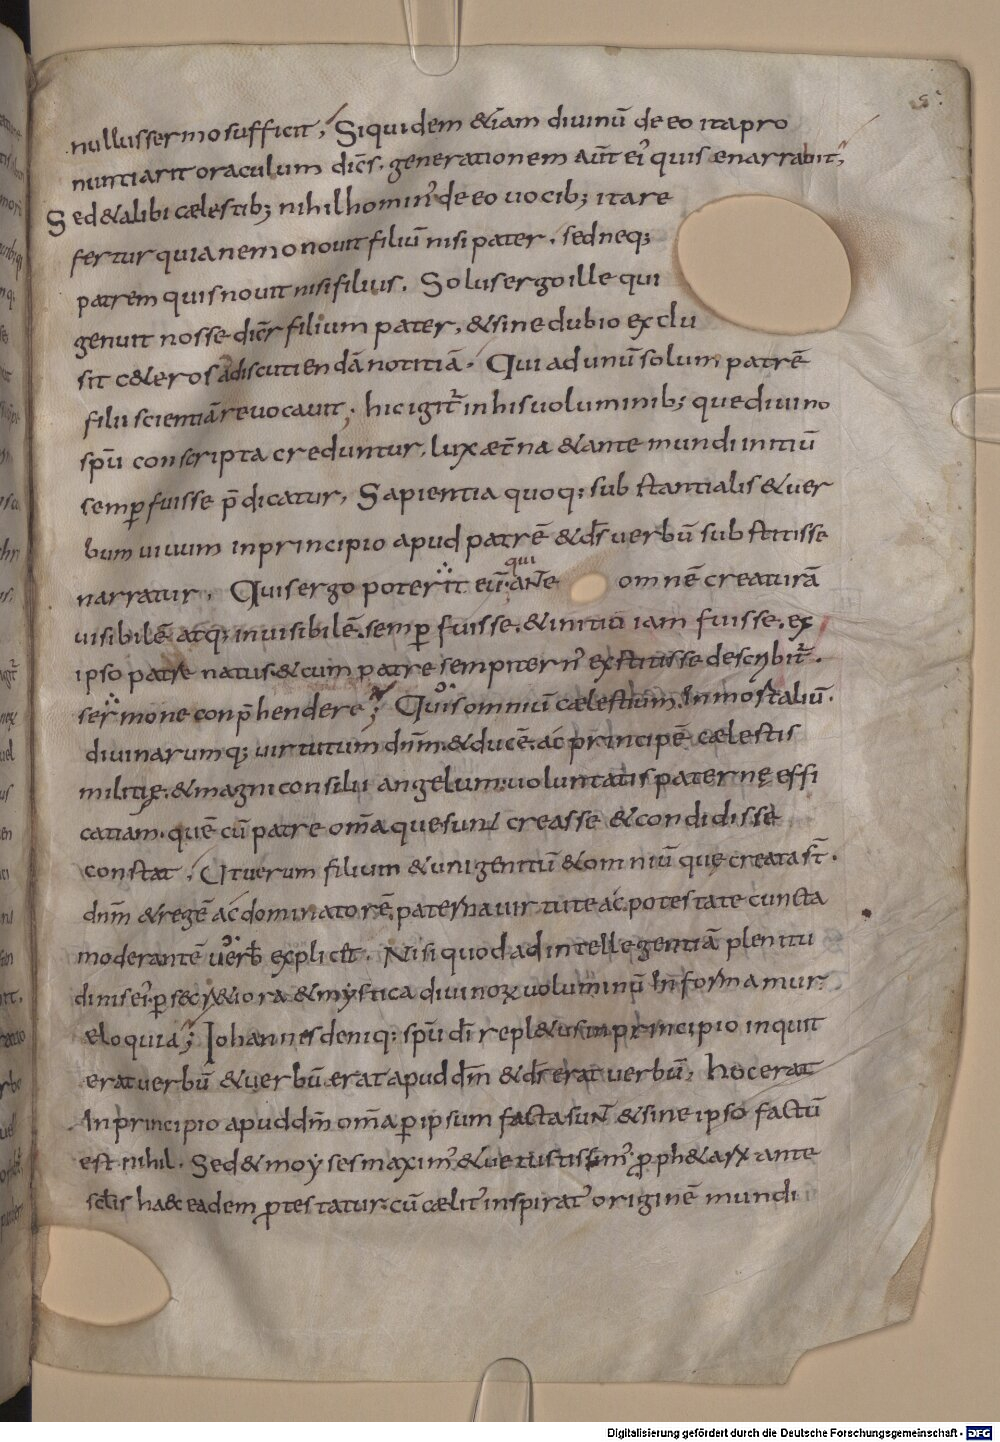 5
nullus sermo sufficit; Siquidem &iam diuinū de eo ita pro
nuntiarit oraculum dic̄s. generationem aūt ei' quis enarrabit;
Sed &alibi cælestib; nihilhomin' de eo uocib; ita re
fertur quia nemo nouit filiū nisi pater. sed neq;
patrem quis nouit nisi filius. Solus ergo ille qui
genuit nosse dicr̄ filium pater, &sine dubio exclu
sit c&eros adiscutiendā notitiā. Qui ad unū solum patrē
filii scientiā reuocauit; hic igit̄ in his uoluminib; que diuino
spū conscripta creduntur, lux æt̄na &ante mundi initiū
semꝑ fuisse p̄dicatur, Sapientia quoq; substantialis &uer
bum uiuum in principio apud patrē &ds̄ uerbū substitisse
narratur. Quis ergo poterit eū qui aNte omnē creaturā
uisibilē atq; inuisibilē semꝑ fuisse. &initiū iam fuisse. ex
ipso patre natus &cum patre sempitern' exstitisse describit̄.
sermone conp̄hendere; Quis omniū cælestium. Inmortaliū.
diuinarumq; uirtutum dnm̄ &ducē. ac principē cælestis
militię. &magni consilii angelum. uoluntatis paternę effi
catiam. quē cū patre om̄a que sunt creasse &condidisse
constat. Ut uerum filium &unigenitū &omniū quę creata st̄.
dnm̄ &regē ac dominatorē, paterna uirtute ac potestate cuncta
moderantē uerb̄ explicet. Nisi quod ad intellegentiā plenitu
dinis ei' ꝑ secr&iora &mystica diuinoꝝ uoluminū Informamur
æloquia; Iohannes deniq; spū dī repl&us in principio inquit
erat uerbū &uerbū erat apud dm̄ &ds̄ erat uerbū, hoc erat
In principio apud dm̄ om̄a ꝑ ipsum facta suNt &sine ipso factū
est nihil. Sed &moyses maxim' &uetustissim' ꝓph&arꝝ ante
sc̄lis haec eadem ꝓtestatur. cū cælit' inspirat' originē mundi
Digitalisierung gefördert durch die Deutsche Forschungsgemeinschaft - DFG